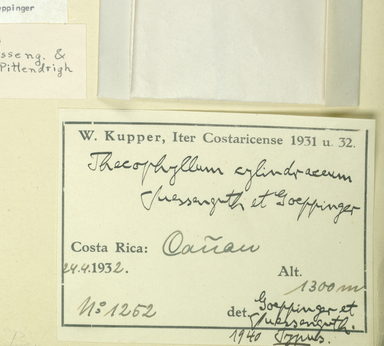 eppinger
sseng. &
Pittendrigh
W. Kupper, Iter Costaricense 1931 u. 32.
Thecophyllum cylindraceum
Suessenguth et Goeppinger
Costa Rica: Cañau
24.4.1932. Alt.
1300 m
No 1252 det. Goeppinger et
Suessenguth.
1940 Typus.